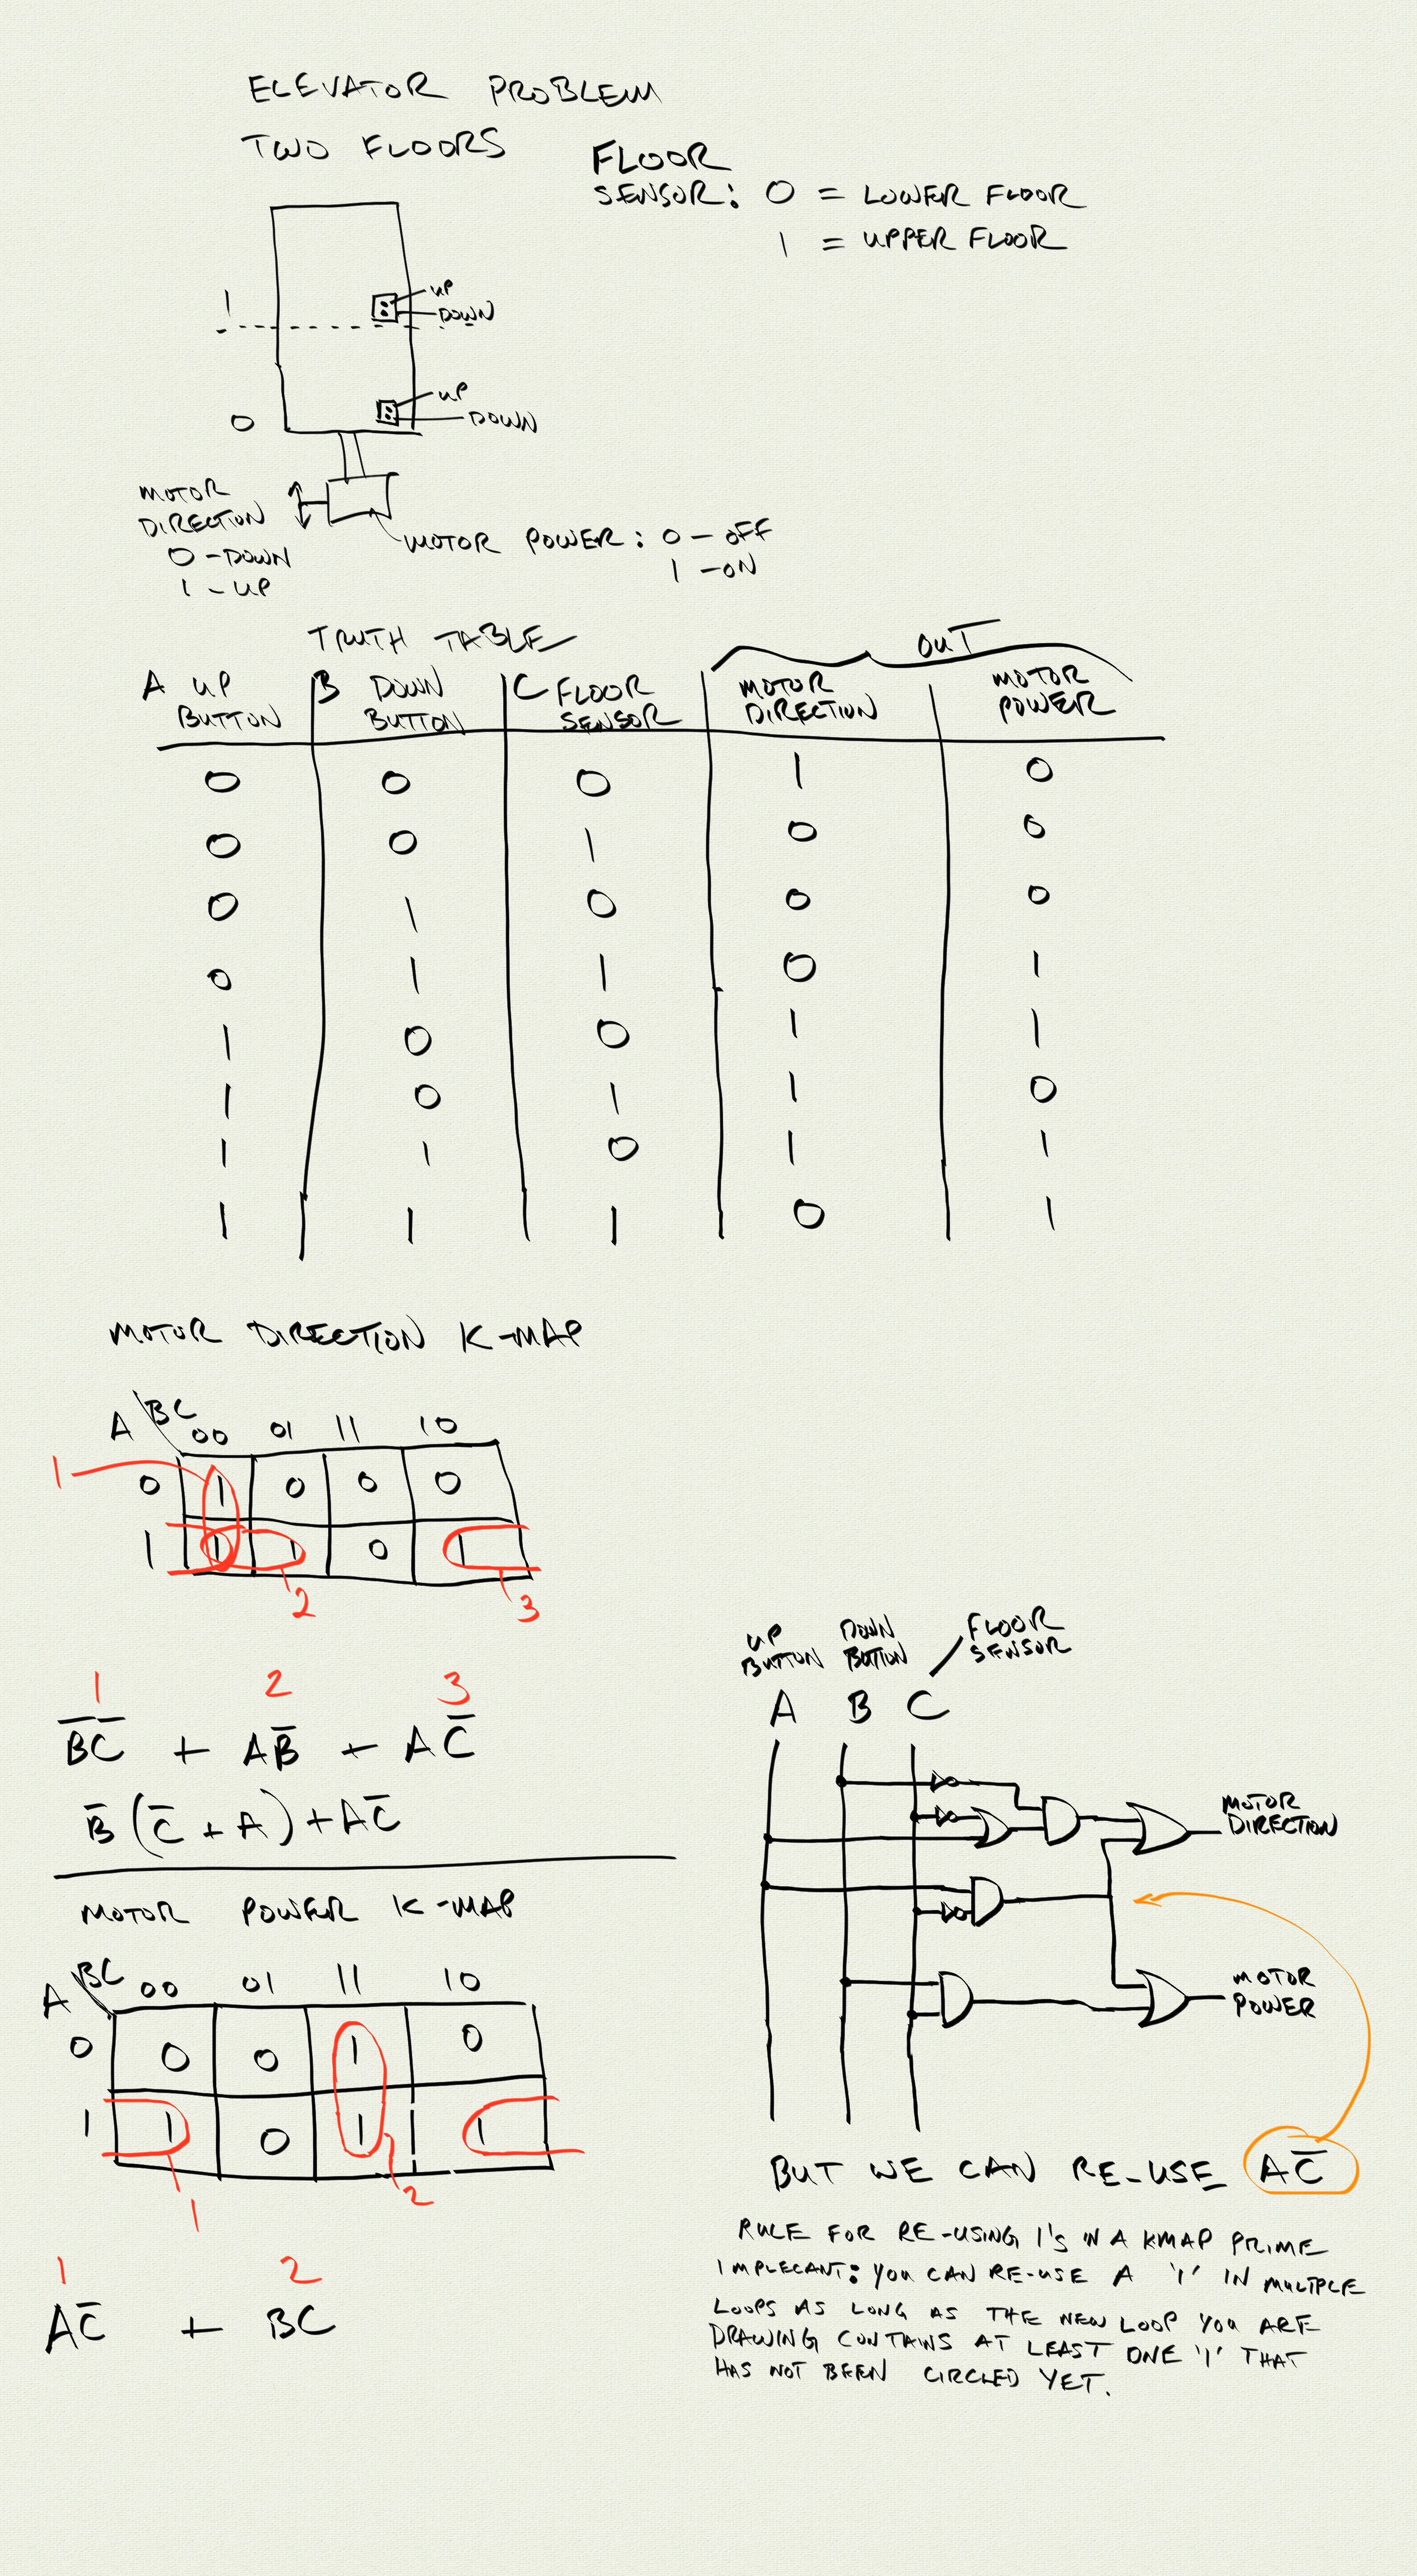 ELEVATOR PROBLEM
TWO FLOORS
FLOOR
SENSOR: 0 = LOWER FLOOR
1 = UPPER FLOOR
1
UP
DOWN
0
UP
DOWN
MOTOR
DIRECTION
0 - DOWN
1 - UP
MOTOR POWER: 0 - OFF
1 - ON
TRUTH TABLE
OUT
A UP BUTTON | B DOWN BUTTON | C FLOOR SENSOR | MOTOR DIRECTION | MOTOR POWER
0 0 0 1 0
0 0 1 0 0
0 1 0 0 0
0 1 1 0 1
1 0 0 1 1
1 0 1 1 0
1 1 0 1 1
1 1 1 0 1
MOTOR DIRECTION K-MAP
A \ BC 00 01 11 10
1
0 1 0 0 0
1 1 1 0 1
2 3
1 2 3
B̅C̅ + AB̅ + AC̅
B̅(C̅ + A) + AC̅
MOTOR POWER K-MAP
A \ BC 00 01 11 10
0 0 0 1 0
1 1 0 1 1
1 2
1 2
AC̅ + BC
UP BUTTON
DOWN BUTTON
FLOOR SENSOR
A B C
MOTOR
DIRECTION
MOTOR
POWER
BUT WE CAN RE-USE AC̅
RULE FOR RE-USING 1's IN A KMAP PRIME
IMPLECANT: YOU CAN RE-USE A '1' IN MULTIPLE
LOOPS AS LONG AS THE NEW LOOP YOU ARE
DRAWING CONTAINS AT LEAST ONE '1' THAT
HAS NOT BEEN CIRCLED YET.